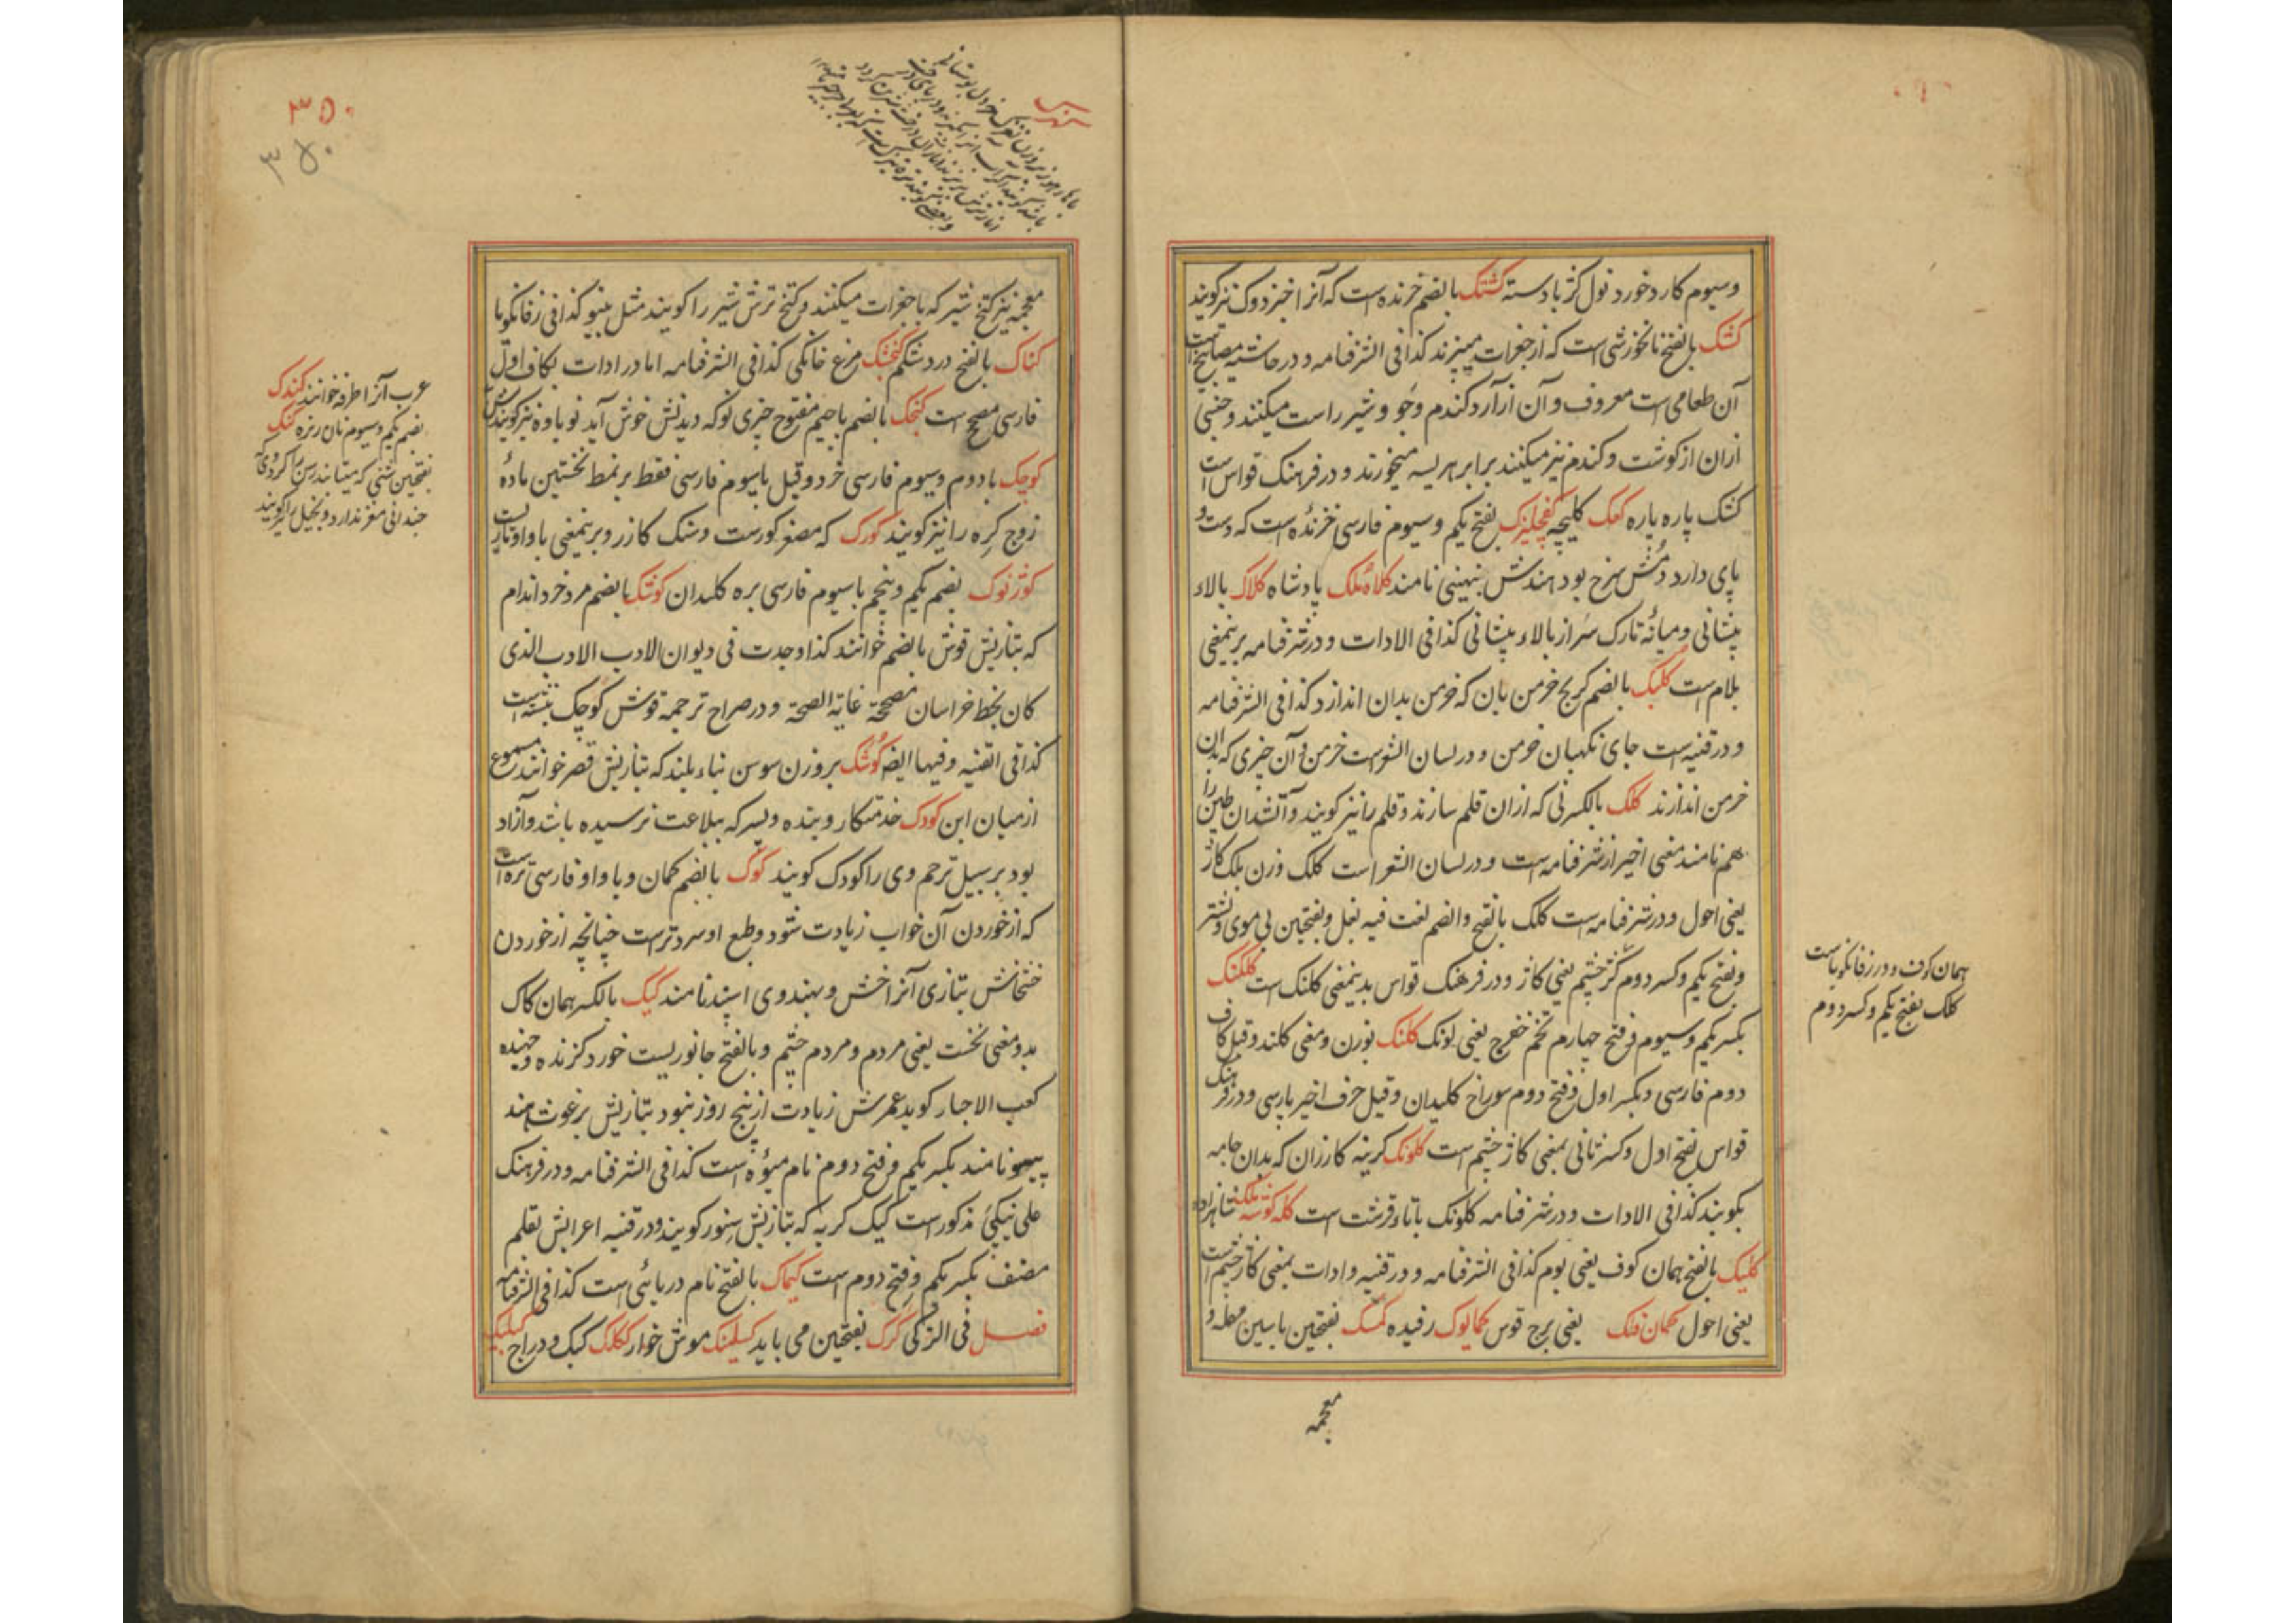 وسیوم کارد خورد نول کژ با دسته کشتک بالضم خزنده است که آنرا خبزدوک نیز کویند
کشک بالفتح نانخورشی است که از جغرات میپزند کذا فی الشرفنامه و در حاشیه مصابیح است
آن طعامی است معروف و آن از آرد کندم و جو و شیر راست میکنند و جنسی
ازان از کوشت و کندم نیز میکنند برابر هریسه میخورند و در فرهنک قواس است
کشک پاره پاره کعک کلیچه کفچلیزک بفتح یکم و سیوم فارسی خزنده است که دست و
پای دارد دمش سرخ بود هندش نامند کلاه ملک پادشاه کلاک بالاء
پیشانی و میانه تارک سر از بالاء پیشانی کذا فی الادات و در شرفنامه برینمعنی
بلام است کلیک بالضم کریج خرمن بان که خرمن بدان اندازد کذا فی الشرفنامه
و در قنیه است جای نکهبان خرمن و در لسان الشعراست خرمن و آن چیزی که بدان
خرمن اندازند کلک بالکسر نی که ازان قلم سازند و قلم را نیز کویند و آتشدان طین را
هم نامند معنی اخیر از شرفنامه است و در لسان الشعراست کلک وزن بلک کاژ
یعنی احول و در شرفنامه است کلک بالفتح والضم لغت فیه بغل و بفتحین بی موی و نشتر
و بفتح یکم و کسر دوم کژ چشم یعنی کاژ و در فرهنک قواس بدینمعنی کلنک است کلکنک
بکسر یکم و سیوم و فتح چهارم تخم خفرج یعنی لونک کلنک بوزن و معنی کلند و قیل کاف
دوم فارسی و بکسر اول و فتح دوم سوراخ کلیدان و قیل حرف اخیر پارسی و در فرهنک
قواس بفتح اول و کسر ثانی بمعنی کاژ چشم است کلونک کرینه کازران که بدان جامه
بکوبند کذا فی الادات و در شرفنامه کلوتک باتاء قرشت است کله کوشه ملک شاهزاده
کلیک بالفتح همان کوف یعنی بوم کذا فی الشرفنامه و در قنیه و ادات بمعنی کاژ چشم است
یعنی احول کمان فلک یعنی برج قوس کمالوک رفیده کمسک بفتحین باسین مهمله و
معجمه
همان کوف و در زفانکویاست
کلک بفتح یکم و کسر دوم
۳۵۰
۳۵۰
معجمه نیز کتخ شیر که با جغرات میکنند و کتخ ترش شیر را کویند مثل پینو کذا فی زفانکویا
کناک بالفتح درد شکم کنجشک مرغ خانکی کذا فی الشرفنامه اما در ادات بکاف اول
فارسی مصحح است کنجک بالضم باجیم مفتوح چیزی نو که دیدنش خوش آید نوباوه نیز کویندش
کوچک با دوم و سیوم فارسی خرد و قیل باسیوم فارسی فقط بر نمط نخستین ماده
زوج کره را نیز کویند کورک که مصغر کورست و سنک کازر و برینمعنی با واو تازیست
کوژنوک بضم یکم و پنجم باسیوم فارسی بره کلیدان کوشک بالضم مرد خرد اندام
که بتازیش قوش بالضم خوانند کذا وجدت فی دیوان الادب الادب الذی
کان بخط خراسان مصححة غایة الصحة و در صراح ترجمه قوش کوچک نبشته است
کذا فی القنیه و فیها ایضا کوشک بر وزن سوسن بناء بلند که بتازیش قصر خوانند مسموع
از میان ابن کودک خدمتکار و بنده و پسر که ببلاغت نرسیده باشد و آزاد
بود بر سبیل ترحم وی را کودک کویند کوک بالضم کمان و با واو فارسی تره است
که از خوردن آن خواب زیادت شود و طبع او سرد ترست چنانچه از خوردن
خشخاش بتازی آنرا خش و بهندوی اسپند نامند کیک بالکسر همان کاک
بدو معنی نخست یعنی مردم و مردم چشم و بالفتح جانوریست خورد کزنده و جهنده
کعب الاحبار کوید عمرش زیادت از پنج روز نبود بتازیش برغوث هند
پیسو نامند بکسر یکم و فتح دوم نام میوه است کذا فی الشرفنامه و در فرهنک
علی نیکپی مذکورست کیک کربه که بتازیش سنور کویند و در قنیه اعرابش بقلم
مصنف بکسر یکم و فتح دوم است کیماک بالفتح نام دریائی است کذا فی الشرفنامه
فصل فی الترکی کرک بفتحین می باید کسلینک موش خوار ککلک کبک و دراج
عرب آنرا طرفه خوانند کندک
بضم یکم و سیوم نان ریزه کنک